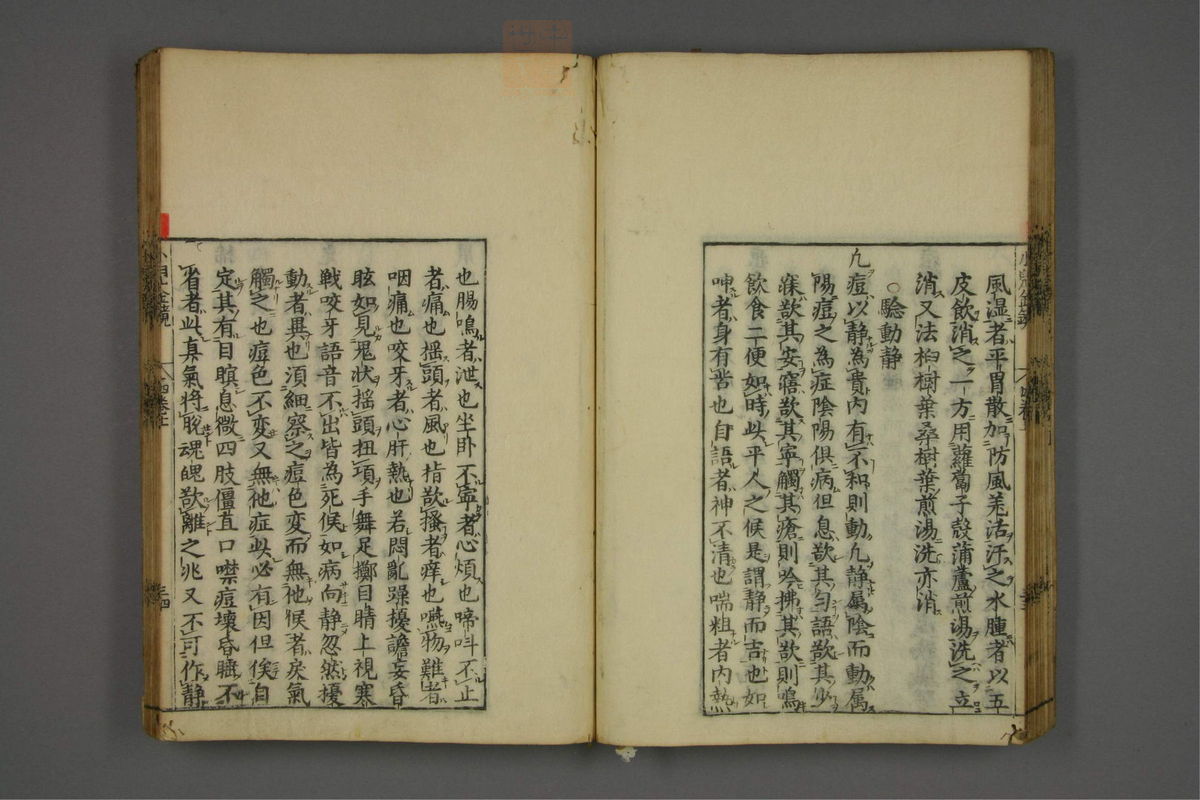 風湿者平胃散加防風羌活汗之水腫者以五
皮飲消之一方用蘿蔔子殼蒲蘆煎湯洗之立
消又法柏樹葉桑樹葉煎湯洗亦消
○驗動静
凢痘以静為貴内有不和則動凢静属陰而動属
陽痘之為症陰陽倶病但息欲其匀語欲其少
寐欲其安寤欲其寧觸其瘡則吟拂其欲則鳴
飲食二便如時此平人之候是謂静而吉也如
呻者身有苦也自語者神不清也喘粗者内熱
也腸鳴者泄也坐卧不寧者心煩也啼叫不止
者痛也揺頭者風也指欲搔者痒也嚥物難者
咽痛也咬牙者心肝熱也若悶亂躁擾譫妄昏
眩如見鬼状揺頭扭項手舞足擲目睛上視寒
戦咬牙語音不出皆為死候如病向静忽然擾
動者異也湏細察之痘色変而無他候者戾氣
觸之也痘色不変又無他症此必有因但俟自
定其有目瞑息微四肢僵直口噤痘壊昏睡不
省者此真氣将脫魂魄欲離之兆又不可作静